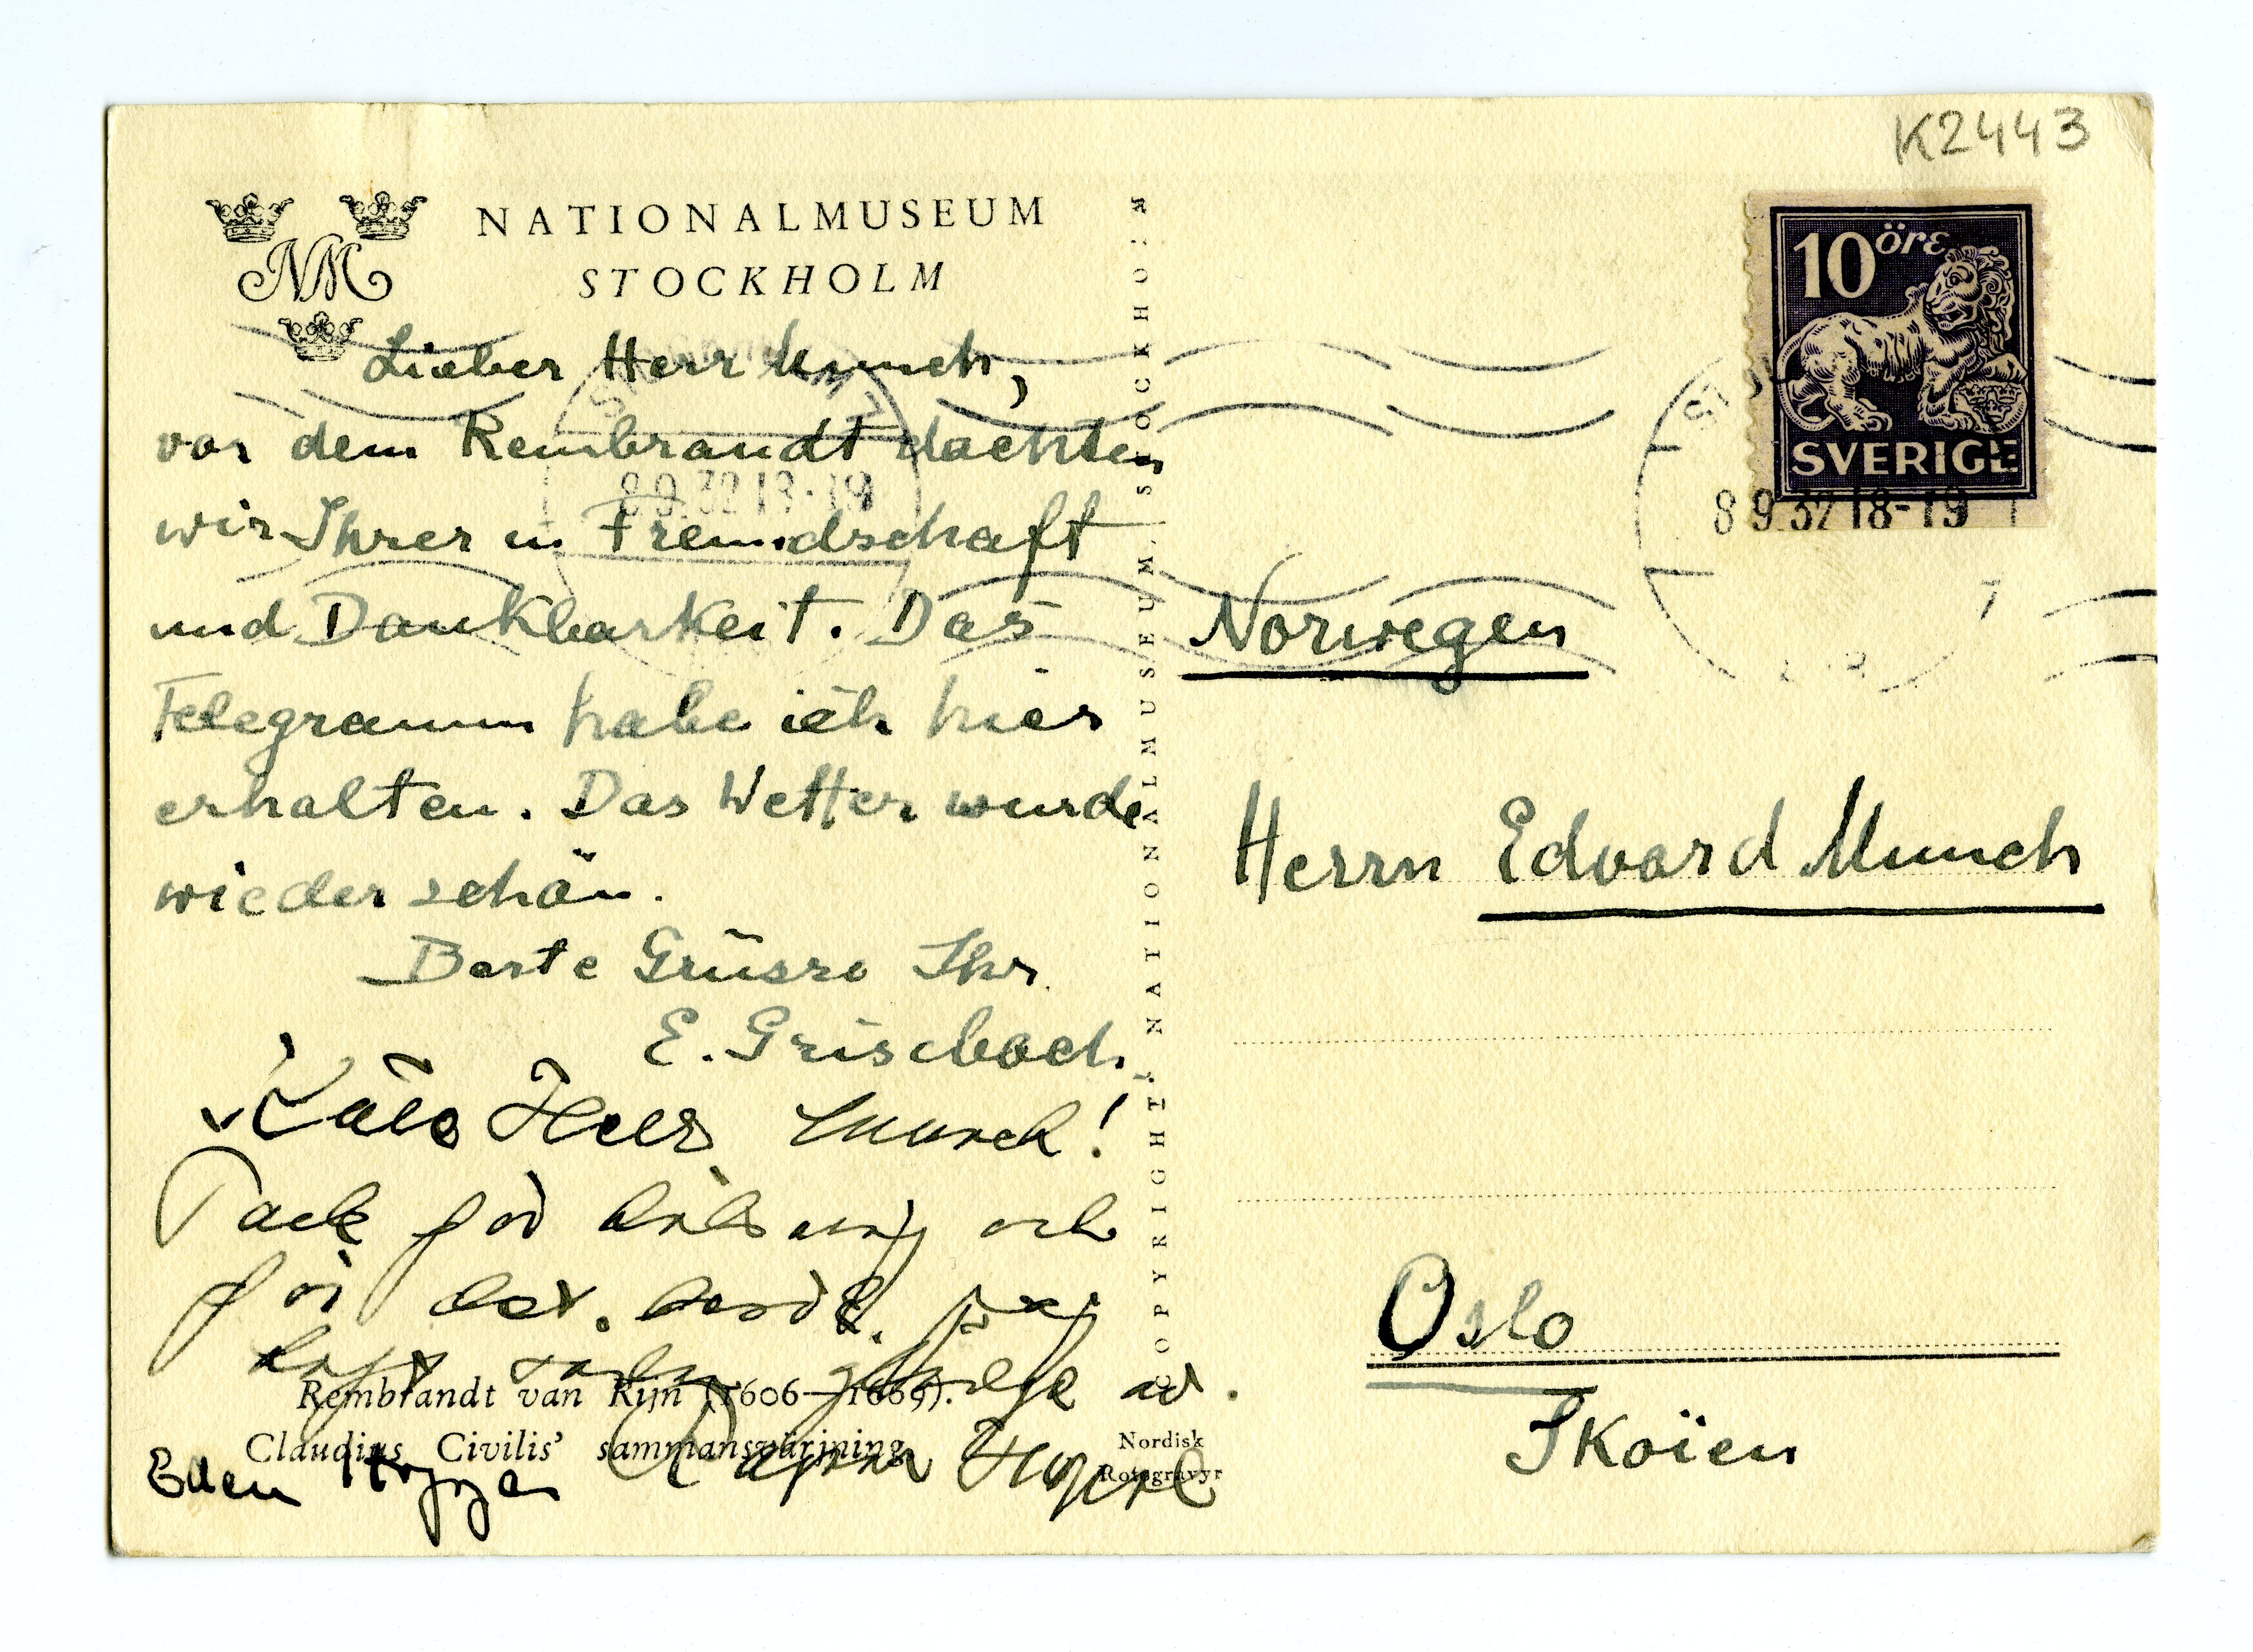 K2443
NATIONALMUSEUM
STOCKHOLM
NM
10 öre
SVERIGE
8 9.32 18-19
8 9.32 18-19
Lieber Herr Munch,
vor dem Rembrandt dachten
wir Ihrer in Freundschaft
und Dankbarkeit. Das
Telegramm habe ich hier
erhalten. Das Wetter wurde
wieder schön.
Beste Grüsse Ihr
E. Grisebach
Käre Herr Munch!
Tack för hälsning och
för
Ellen Hoppe
Rembrandt van Rijn (1606—1669).
Claudius Civilis' sammansvärjning.
Nordisk
Rotogravyr
COPYRIGHT, NATIONALMUSEUM, STOCKHOLM
Norwegen
Herrn Edvard Munch
Oslo
Sköien